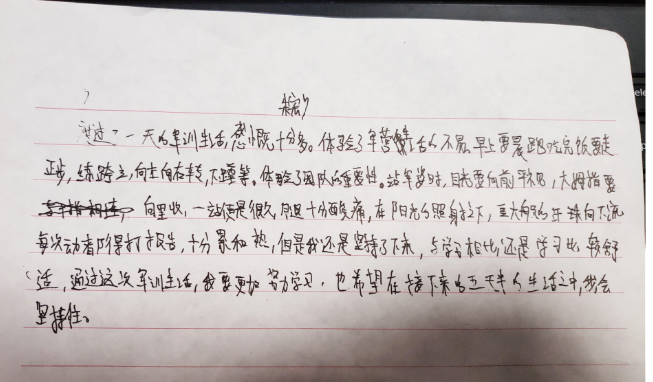 通过一天的军训生活,感慨十分多。体验了军营生活的不易,早上要晨跑,吃完饭要走
正步,练跨立,向左向右转,下蹲等。体验了团队的重要性。站军姿时,目光要向前平视,大拇指要
向里收,一站便是很久,腿十分酸痛,在阳光的照射之下,豆大的汗珠向下流
每次动都得打报告,十分累和热,但是我还是坚持了下来,与学习相比还是学习比较舒
适,通过这次军训生活,我要更加努力学习,也希望在接下来的五天半的生活之中,我会
坚持住。